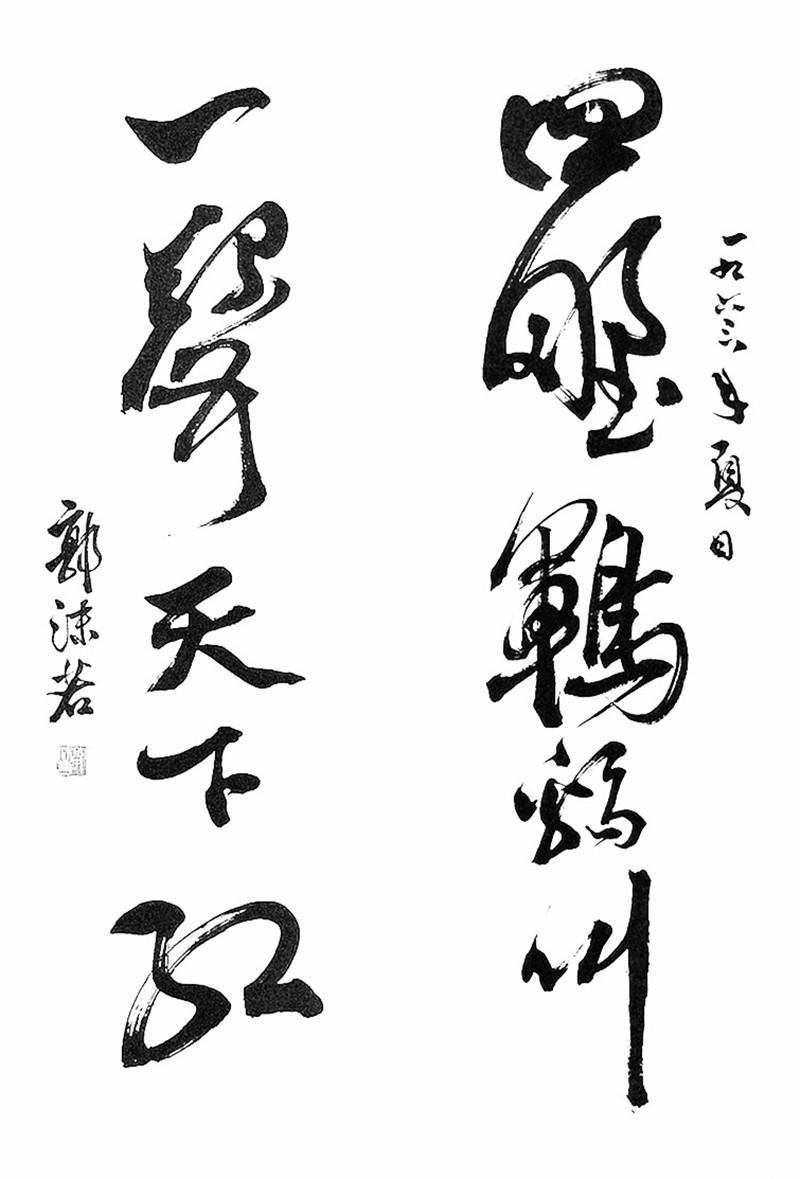 一九六六年夏日
四野鶤鷄叫
一聲天下紅
郭沫若